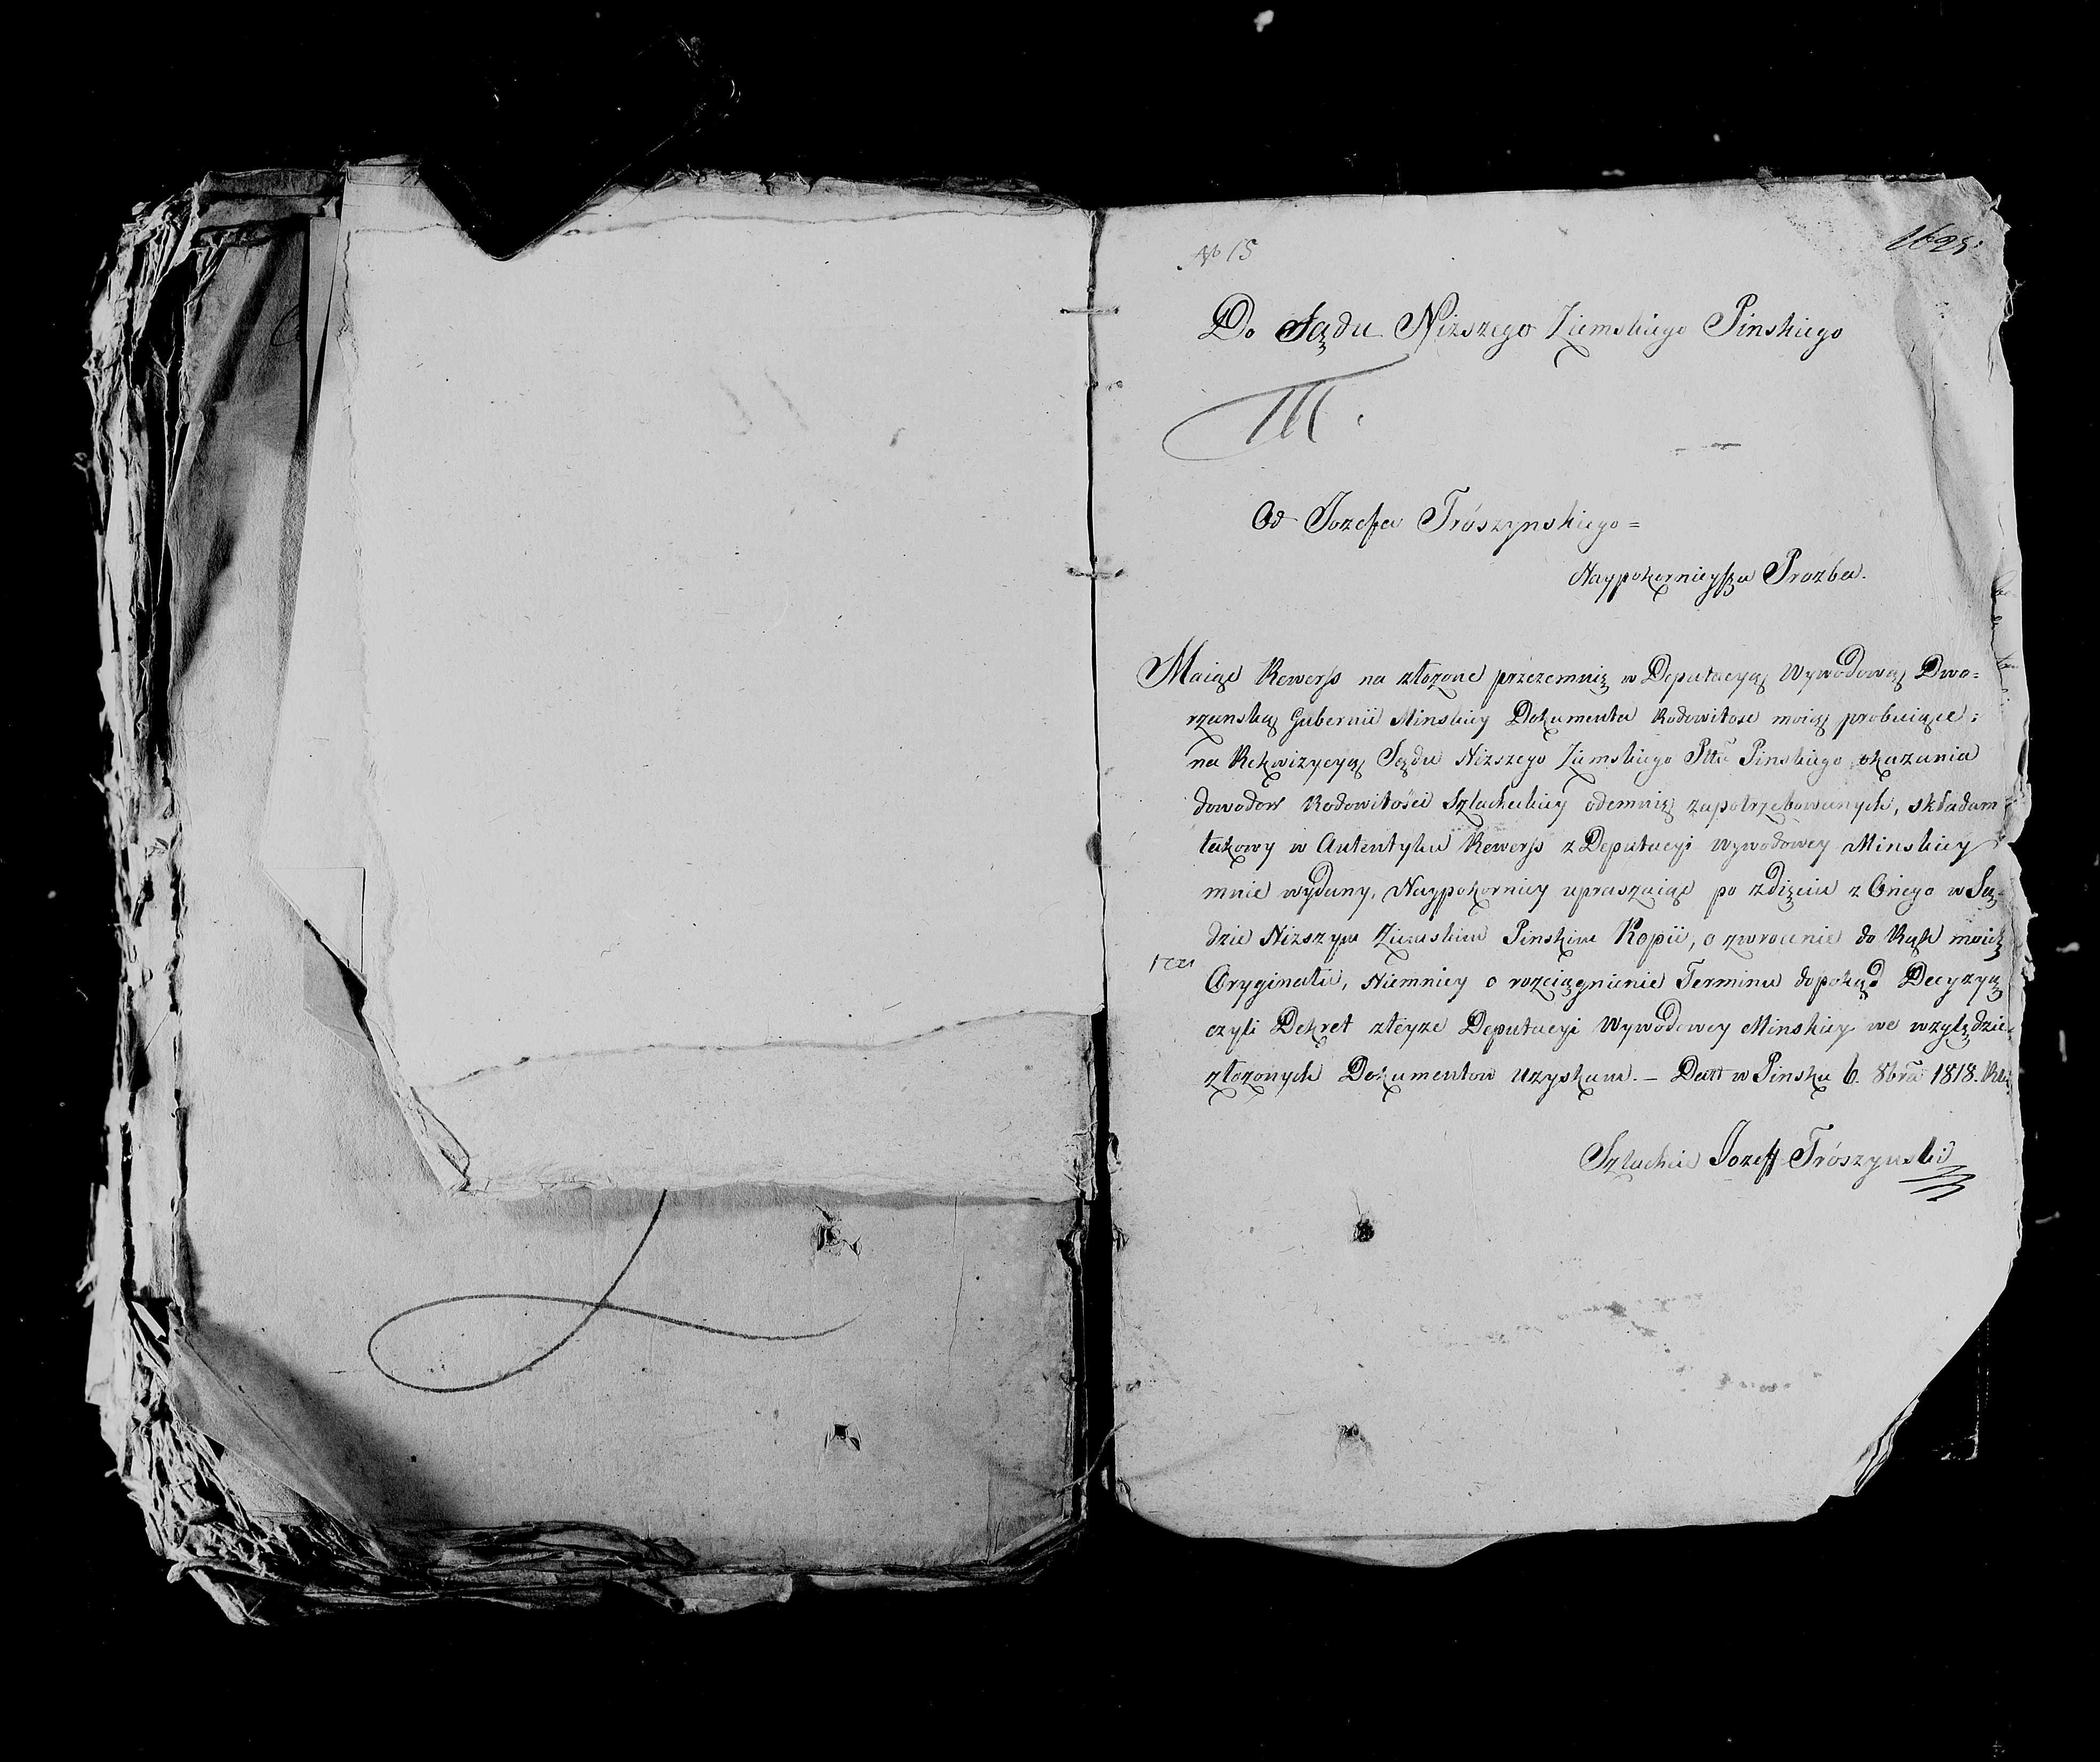 № 15
1625.
Do Sądu Nizszego Ziemskiego Pinskiego
Od Jozefa Trószynskiego =
Naypokornieysza Prozba.
Maiąc Rewerss na złozone przezemnię w Deputacyą Wywodową Dwo=
rzanską Gubernii Minskiey Dokumenta Rodowitosc moię probuiące;
na Rekwizycyą Sądu Nizszego Ziemskiego Pttu Pinskiego okazania
dowodow Rodowitości Szlacheckiey odemnię zapotrzebowanych, składam
takowy w Autentyku Rewerss z Deputacyi Wywodowey Minskiey
mnie wydany, Naypokorniey upraszaiąc po zdięciu z Onego w Są=
dzie Nizszym Ziemskim Pinskim Kopii, o zwrocenie do Rąk moich
Oryginału, Niemniey o rozciągnienie Terminu dopokąd Decyzyą
czyli Dekret zteyze Deputacyi Wywodowey Minskiey we względzie
złozonych Dokumentow uzyskam. — Datt w Pinsku 6. 8bra 1818.
Szlachcic Jozeff Trószynski